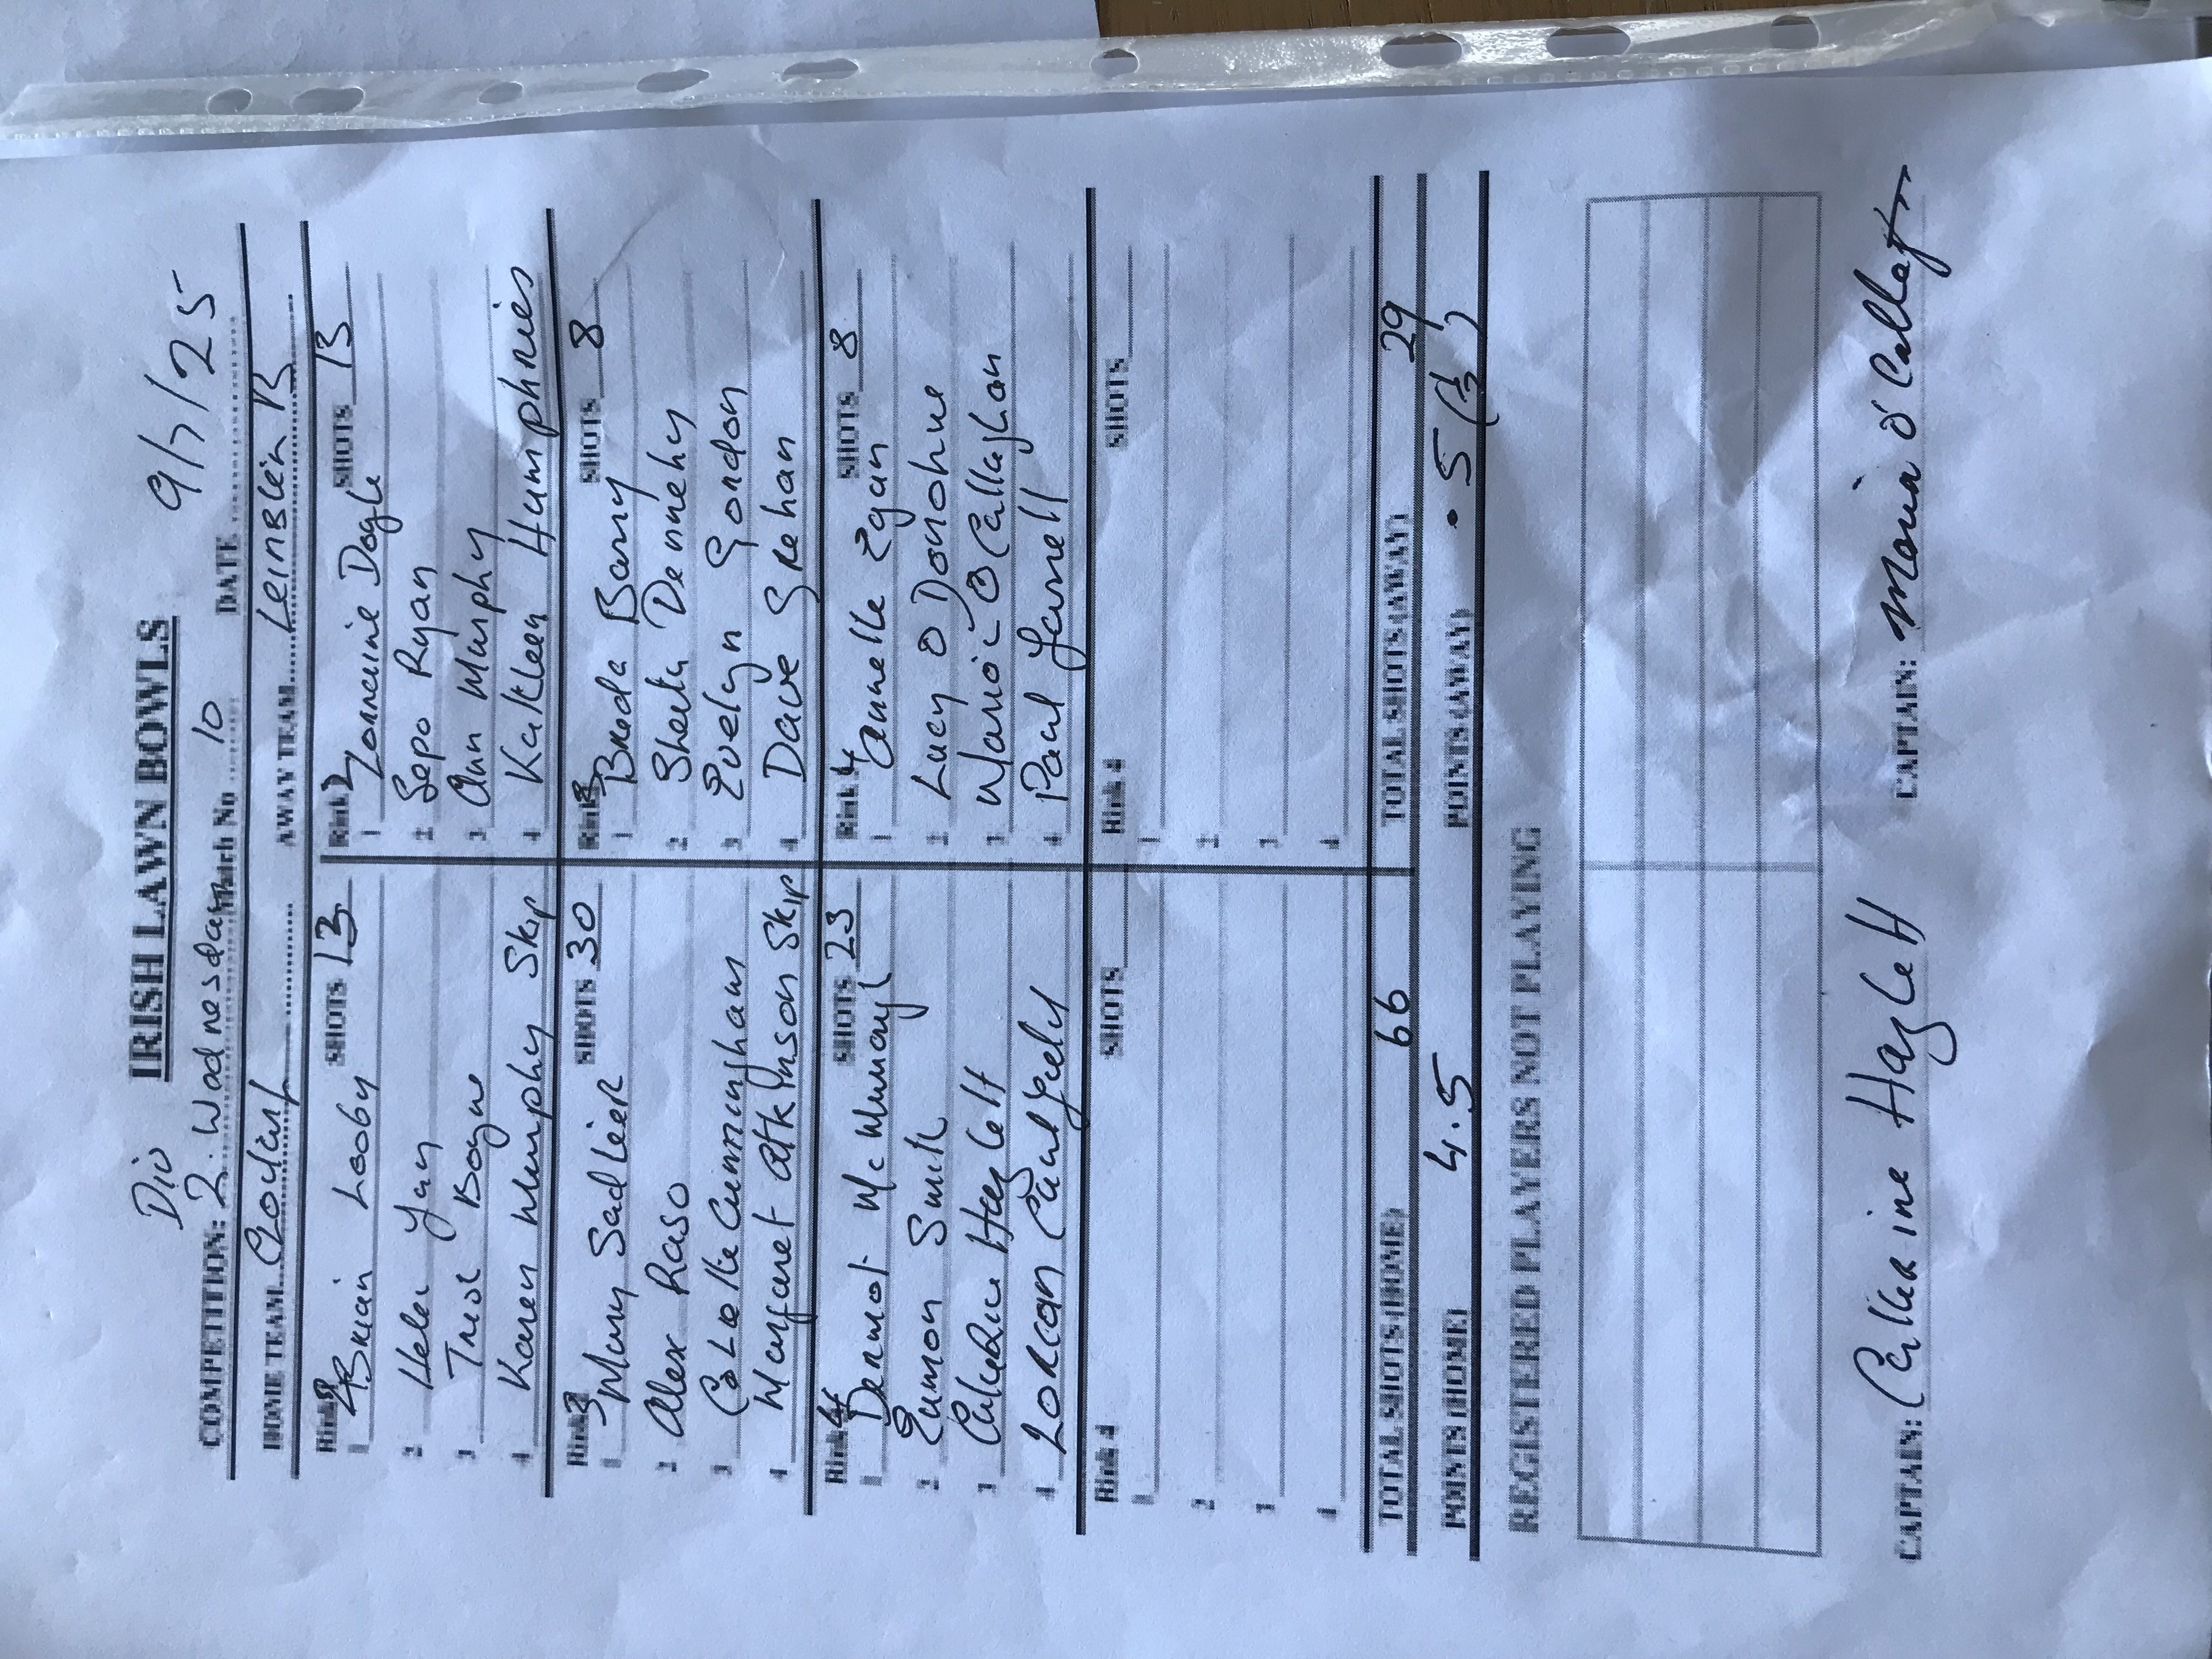 IRISH LAWN BOWLS
Div
COMPETITION: 2. Wednesday Match No 10 DATE 9/7/25
HOME TEAM AWAY TEAM Leinster B
Rink 2 SHOTS 13 Rink 2 SHOTS 13
1 Brian Looby 1 Lorraine Doyle
2 Helen 2 Sepo Ryan
3 Boyne 3 Ann Murphy
4 Karen Murphy Skip 4 Kathleen Humphries
Rink 3 SHOTS 30 Rink 3 SHOTS 8
1 Mary Sadlier 1 Breda Barry
2 Alex Raso 2 Sheila Dennehy
3 Colette Cunningham 3 Evelyn Gordon
4 Margaret Atkinson Skip 4 Dave Grehan
Rink 4 SHOTS 23 Rink 4 SHOTS 8
1 Dermot 1 Annette Egan
2 Eamon Smith 2 Lucy O Donohue
3 Catherine Hazlett 3 O Callaghan
4 Lorcan 4 Paul
Rink 4 SHOTS Rink 4 SHOTS
1 1
2 2
3 3
4 4
TOTAL SHOTS (HOME) 66 TOTAL SHOTS (AWAY) 29
POINTS (HOME) 4.5 POINTS (AWAY) .5 (½)
REGISTERED PLAYERS NOT PLAYING
CAPTAIN: Catherine Hazlett CAPTAIN: